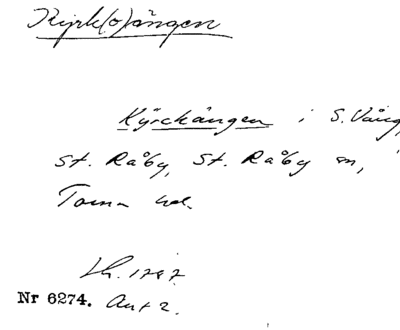 Kyrk(o)ängen
Kyrckängen i S. Vång,
St. Råby, St. Råby sn,
Torna hd.
Lh. 1787
Nr 6274. Akt 2.